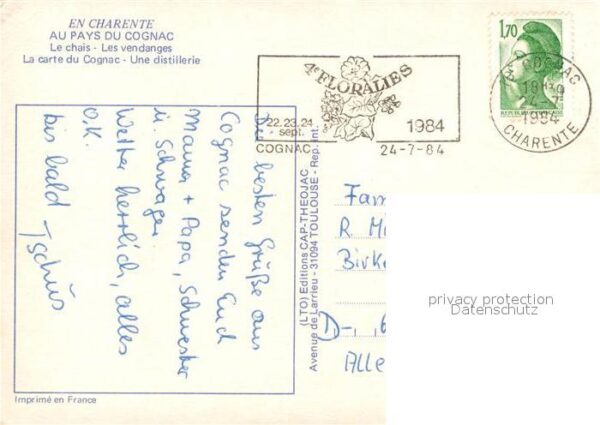 EN CHARENTE
AU PAYS DU COGNAC
Le chais - Les vendanges
La carte du Cognac - Une distillerie
4e FLORALIES
22.23.24
sept.
1984
COGNAC
24-7-84
1,70
COGNAC
1984
CHARENTE
Die besten Grüße aus
Cognac senden Euch
Mama + Papa, Schwester
u. Schwager
Wetter herrlich, alles
O.K.
bis bald - Tschüs
(LTO) Editions CAP-THEOJAC
Avenue de Larrieu - 31094 TOULOUSE - Rep. int.
Fam
R. M
Birk
D-, 6
Alle
privacy protection
Datenschutz
Imprimé en France